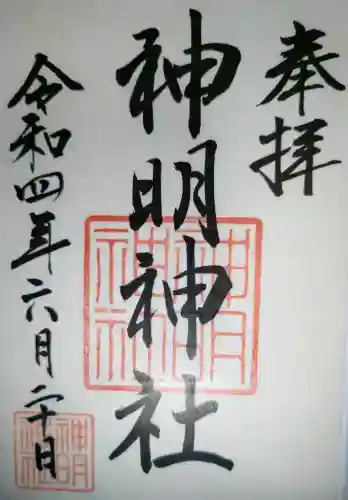 奉拝
神明神社
令和四年六月二十日
神明
神社